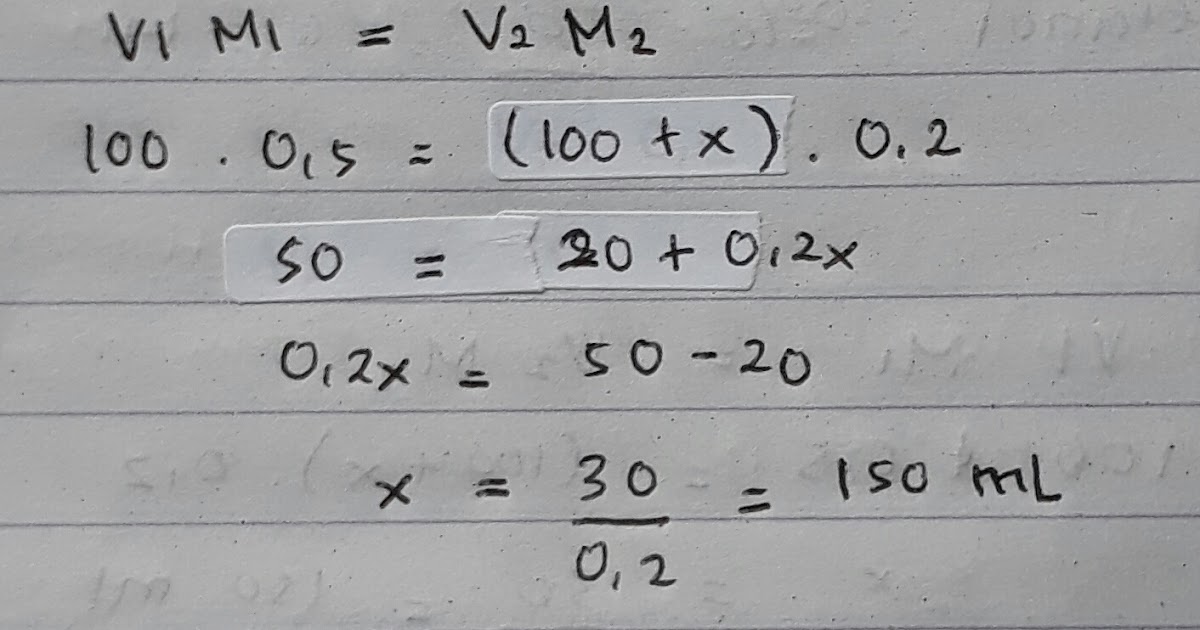 V1 M1 = V2 M2
100 . 0,5 = (100 + x) . 0.2
50 = 20 + 0,2x
0,2x = 50 - 20
x = 30/0,2 = 150 mL